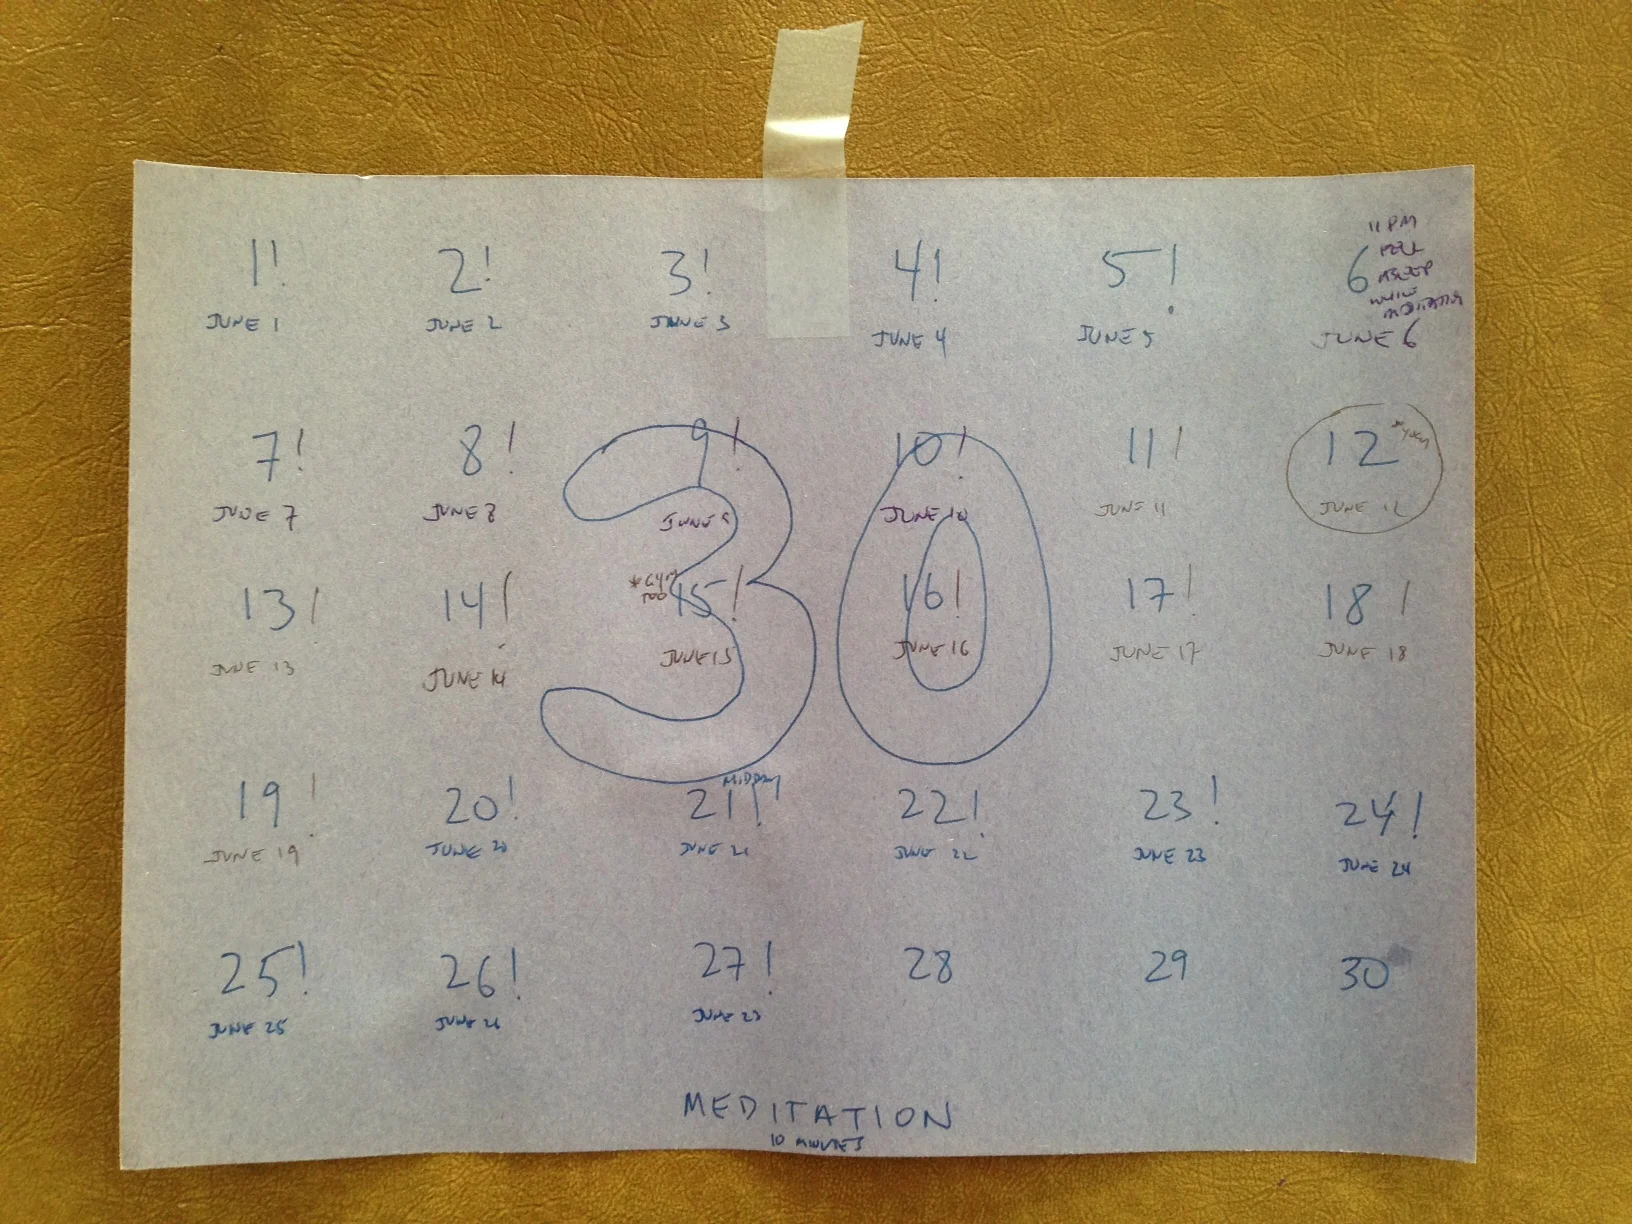 1! 2! 3! 4! 5! 6 11PM
FELL
ASLEEP
WHILE
MEDITATING
JUNE 1 JUNE 2 JUNE 3 JUNE 4 JUNE 5 JUNE 6
7! 8! 9! 10! 11! 12
JUNE 7 JUNE 8 JUNE 9 JUNE 10 JUNE 11 JUNE 12
30
*GYM
TOO
13! 14! 15! 16! 17! 18!
JUNE 13 JUNE 14 JUNE 15 JUNE 16 JUNE 17 JUNE 18
MIDDAY
19! 20! 21! 22! 23! 24!
JUNE 19 JUNE 20 JUNE 21 JUNE 22 JUNE 23 JUNE 24
25! 26! 27! 28 29 30
JUNE 25 JUNE 26 JUNE 27
MEDITATION
10 MINUTES